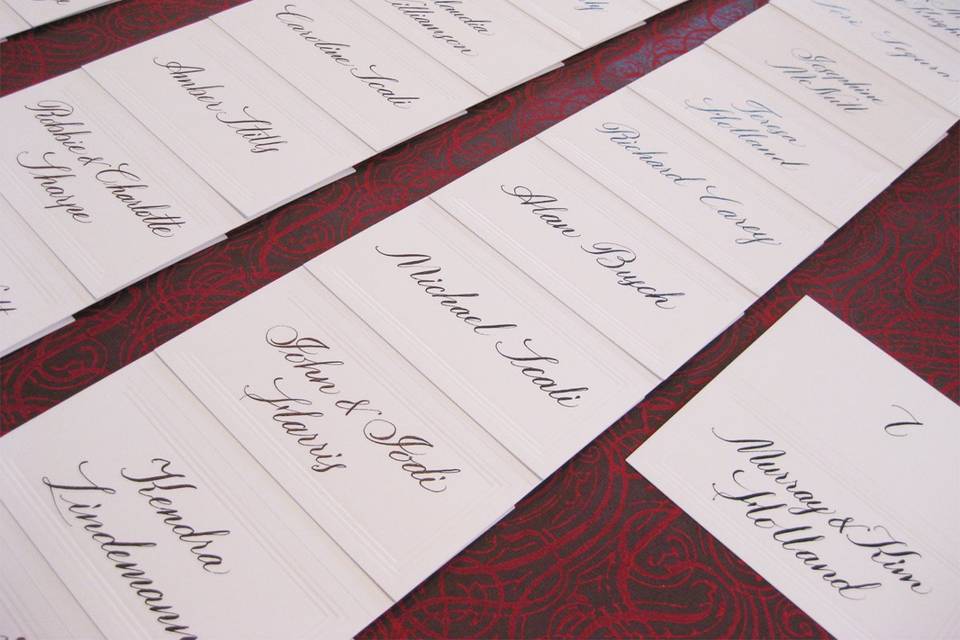 Claudia
Williamson
Caroline Scali
Amber Stills
Robbie & Charlotte
Sharpe
Josephine
McNeill
Teresa
Holland
Richard Carey
Alan Busch
Michael Scali
John & Jodi
Harris
Kendra
Lindemann
Murray & Kim
Holland